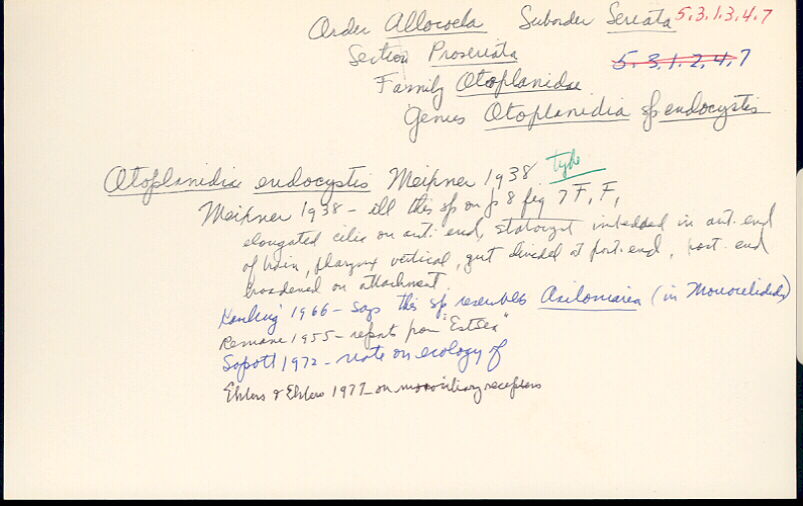 Order Allocoela Suborder Seriata 5.3.1.3.4.7
Section Proseriata 5.3.1.2.4.7
Family Otoplanidae
Genus Otoplanidia sp endocystis
Otoplanidia endocystis Meixner 1938 type
Meixner 1938 - ill this sp on p 8 fig 7 F, F,
elongated cilia on ant. end, statocyst imbedded in ant. end
of brain, pharynx vertical, gut divided at post. end, post. end
broadened on attachment.
Karling 1966 - says this sp resembles Archilomiarea (in Monocelididae)
Remane 1955 - reports from "Ostsee"
Sopott 1972 - note on ecology of
Ehlers & Ehlers 1977 - on monociliary receptors